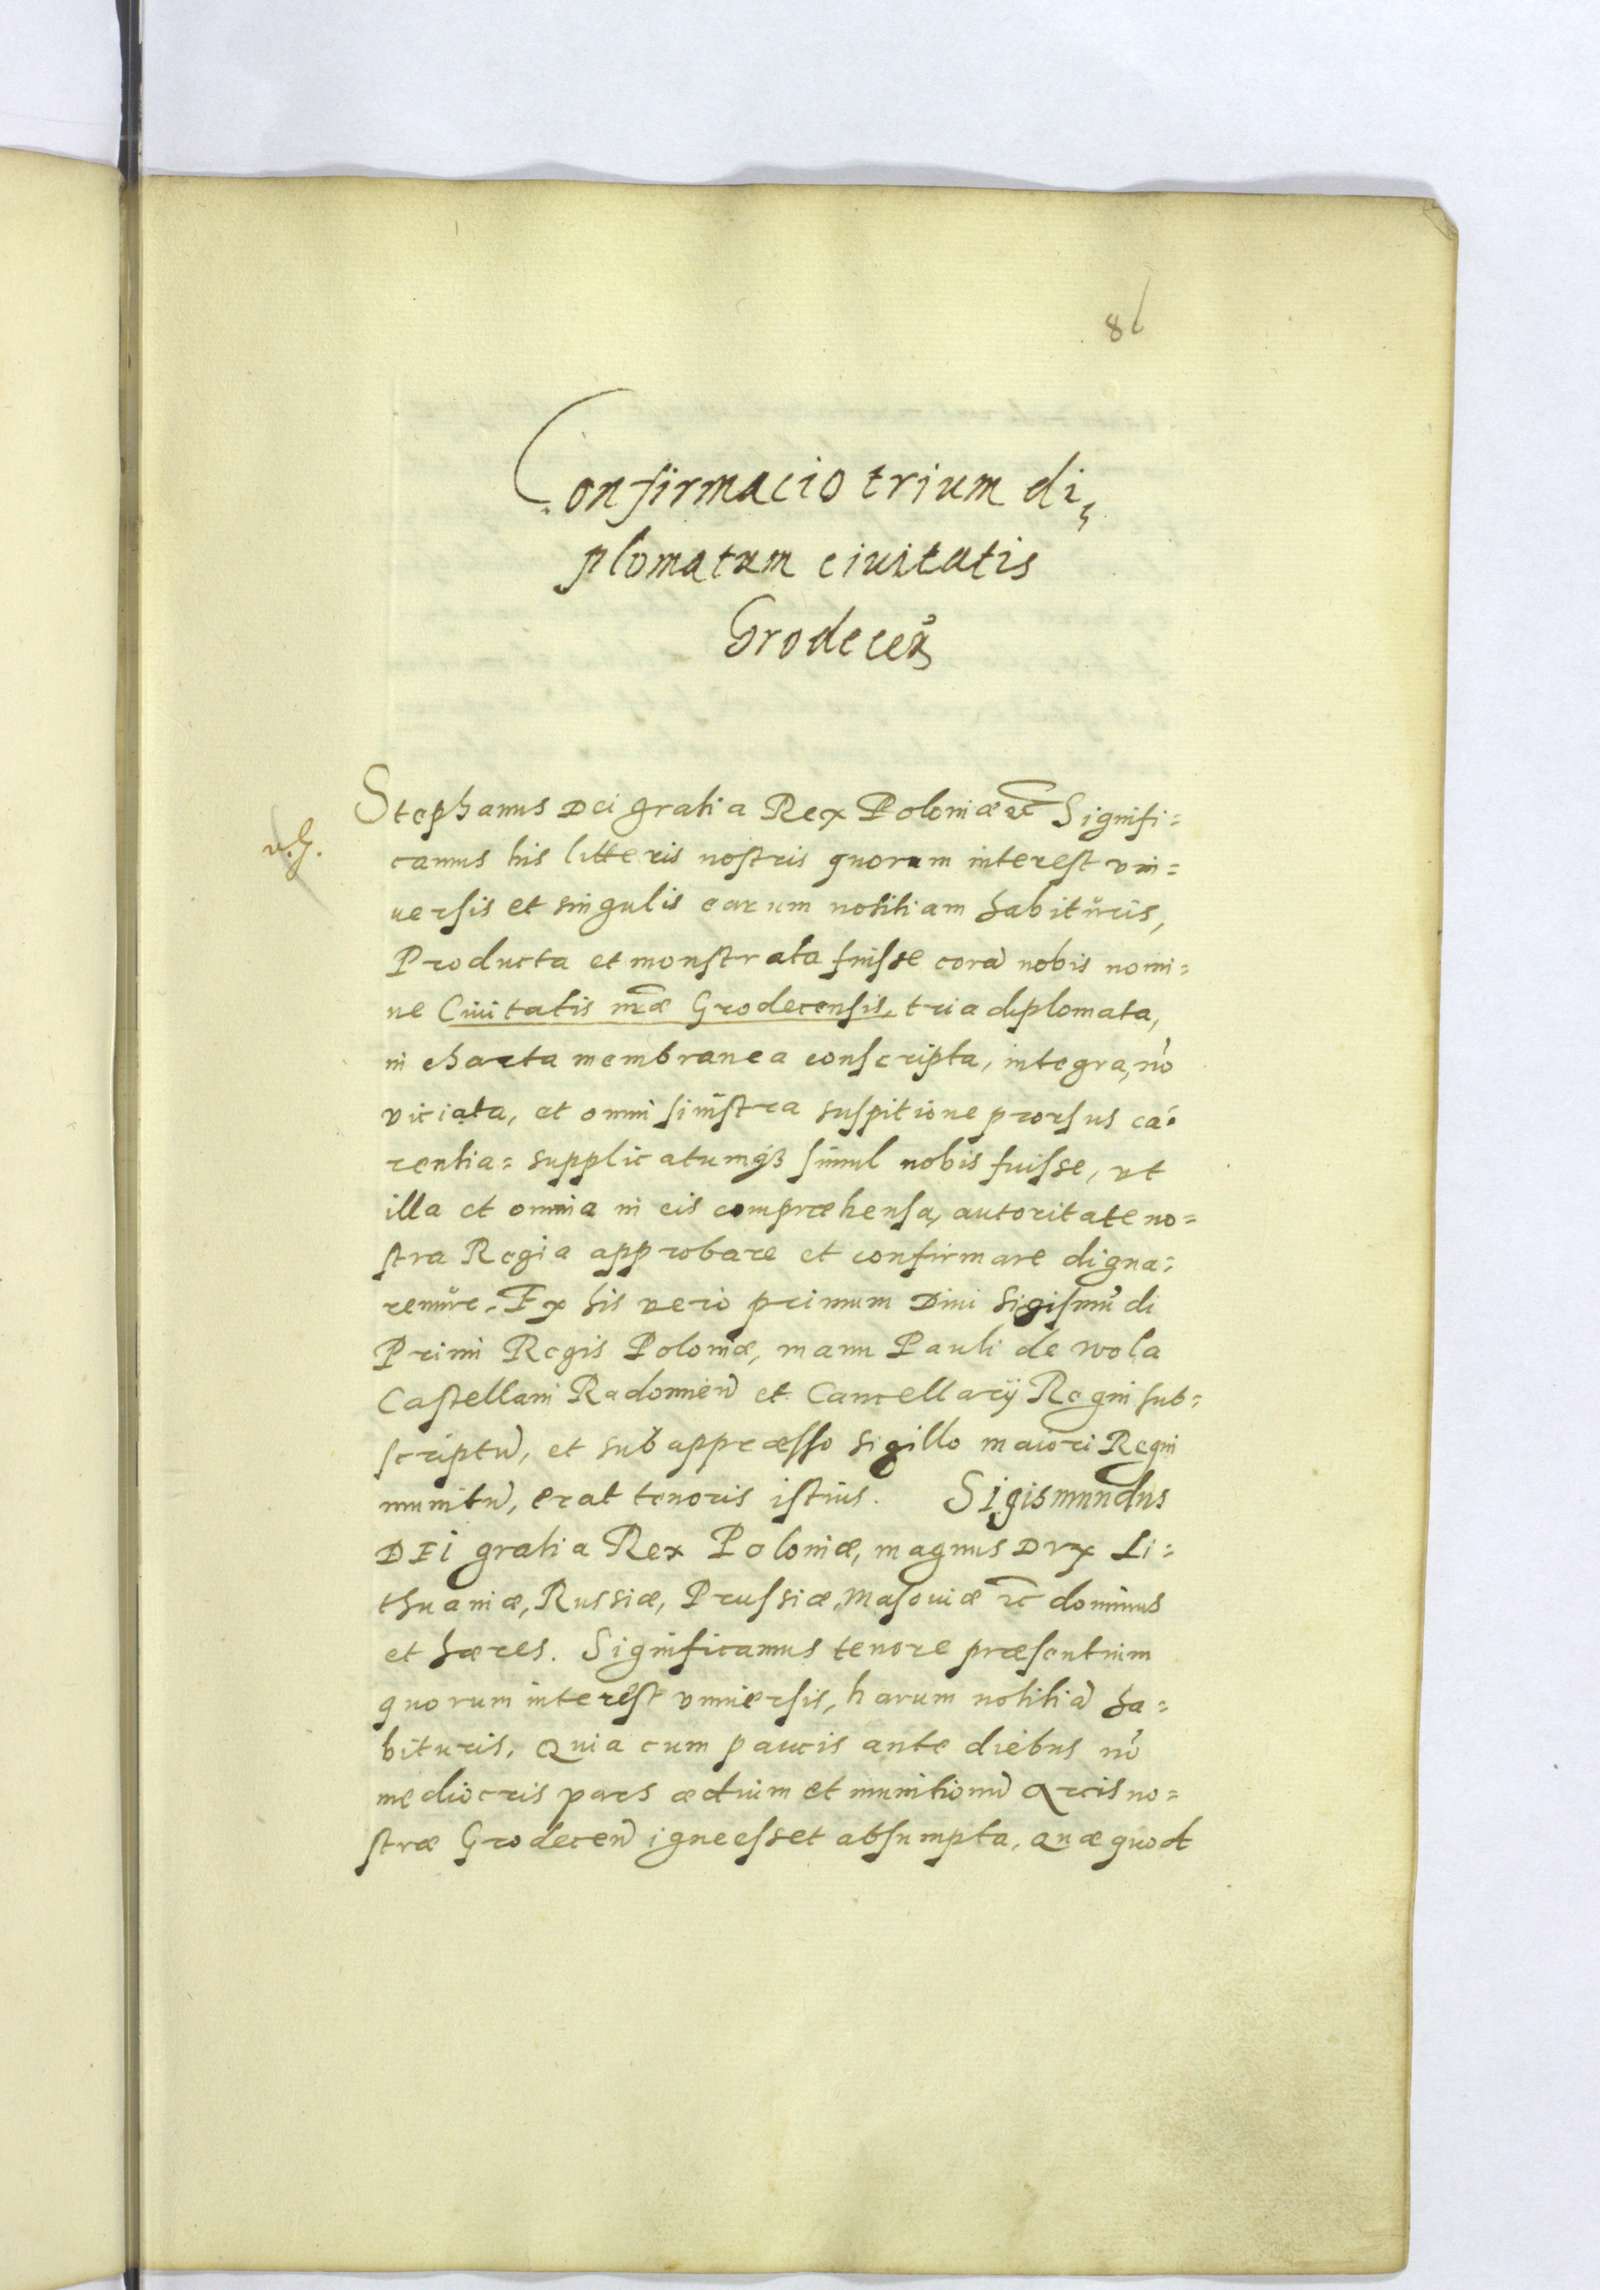 Confirmacio trium di
plomatum ciuitatis
Grodecen̄
Stephanus Dei gratia Rex Poloniæ etc Signifi=
camus his litteris nostris quorum interest vni=
uersis et singulis earum notitiam habituris,
Producta et monstrata fuisse corā nobis nomi=
ne Ciuitatis nr̄æ Grodecensis, tria diplomata,
in charta membranea conscripta, integra, nō
viciata, et omni sinistra suspitione prorsus ca=
rentia= supplicatumq3 simul nobis fuisse, vt
illa et omnia in eis compræhensa, autoritate no=
stra Regia approbare et confirmare digna=
remur. Ex his vero primum Diui Sigismūdi
Primi Regis Poloniæ, manu Pauli de wola
Castellani Radomien̄ et Cancellarij Regni sub=
scriptū, et sub appræsso sigillo maiori Regni
munitū, erat tenoris istius. Sigismundus
DEi gratia Rex Poloniæ, magnus Dux Li=
thuaniæ, Russiæ, Prussiæ, Masouiæ etc dominus
et hæres. Significamus tenore præsentium
quorum interest vniuersis, harum notitiā ha=
bituris, Quia cum paucis ante diebus nō
mediocris pars ædium et munitionū Arcis no=
stræ Grodecen̄ igne esset absumpta, quæ quod